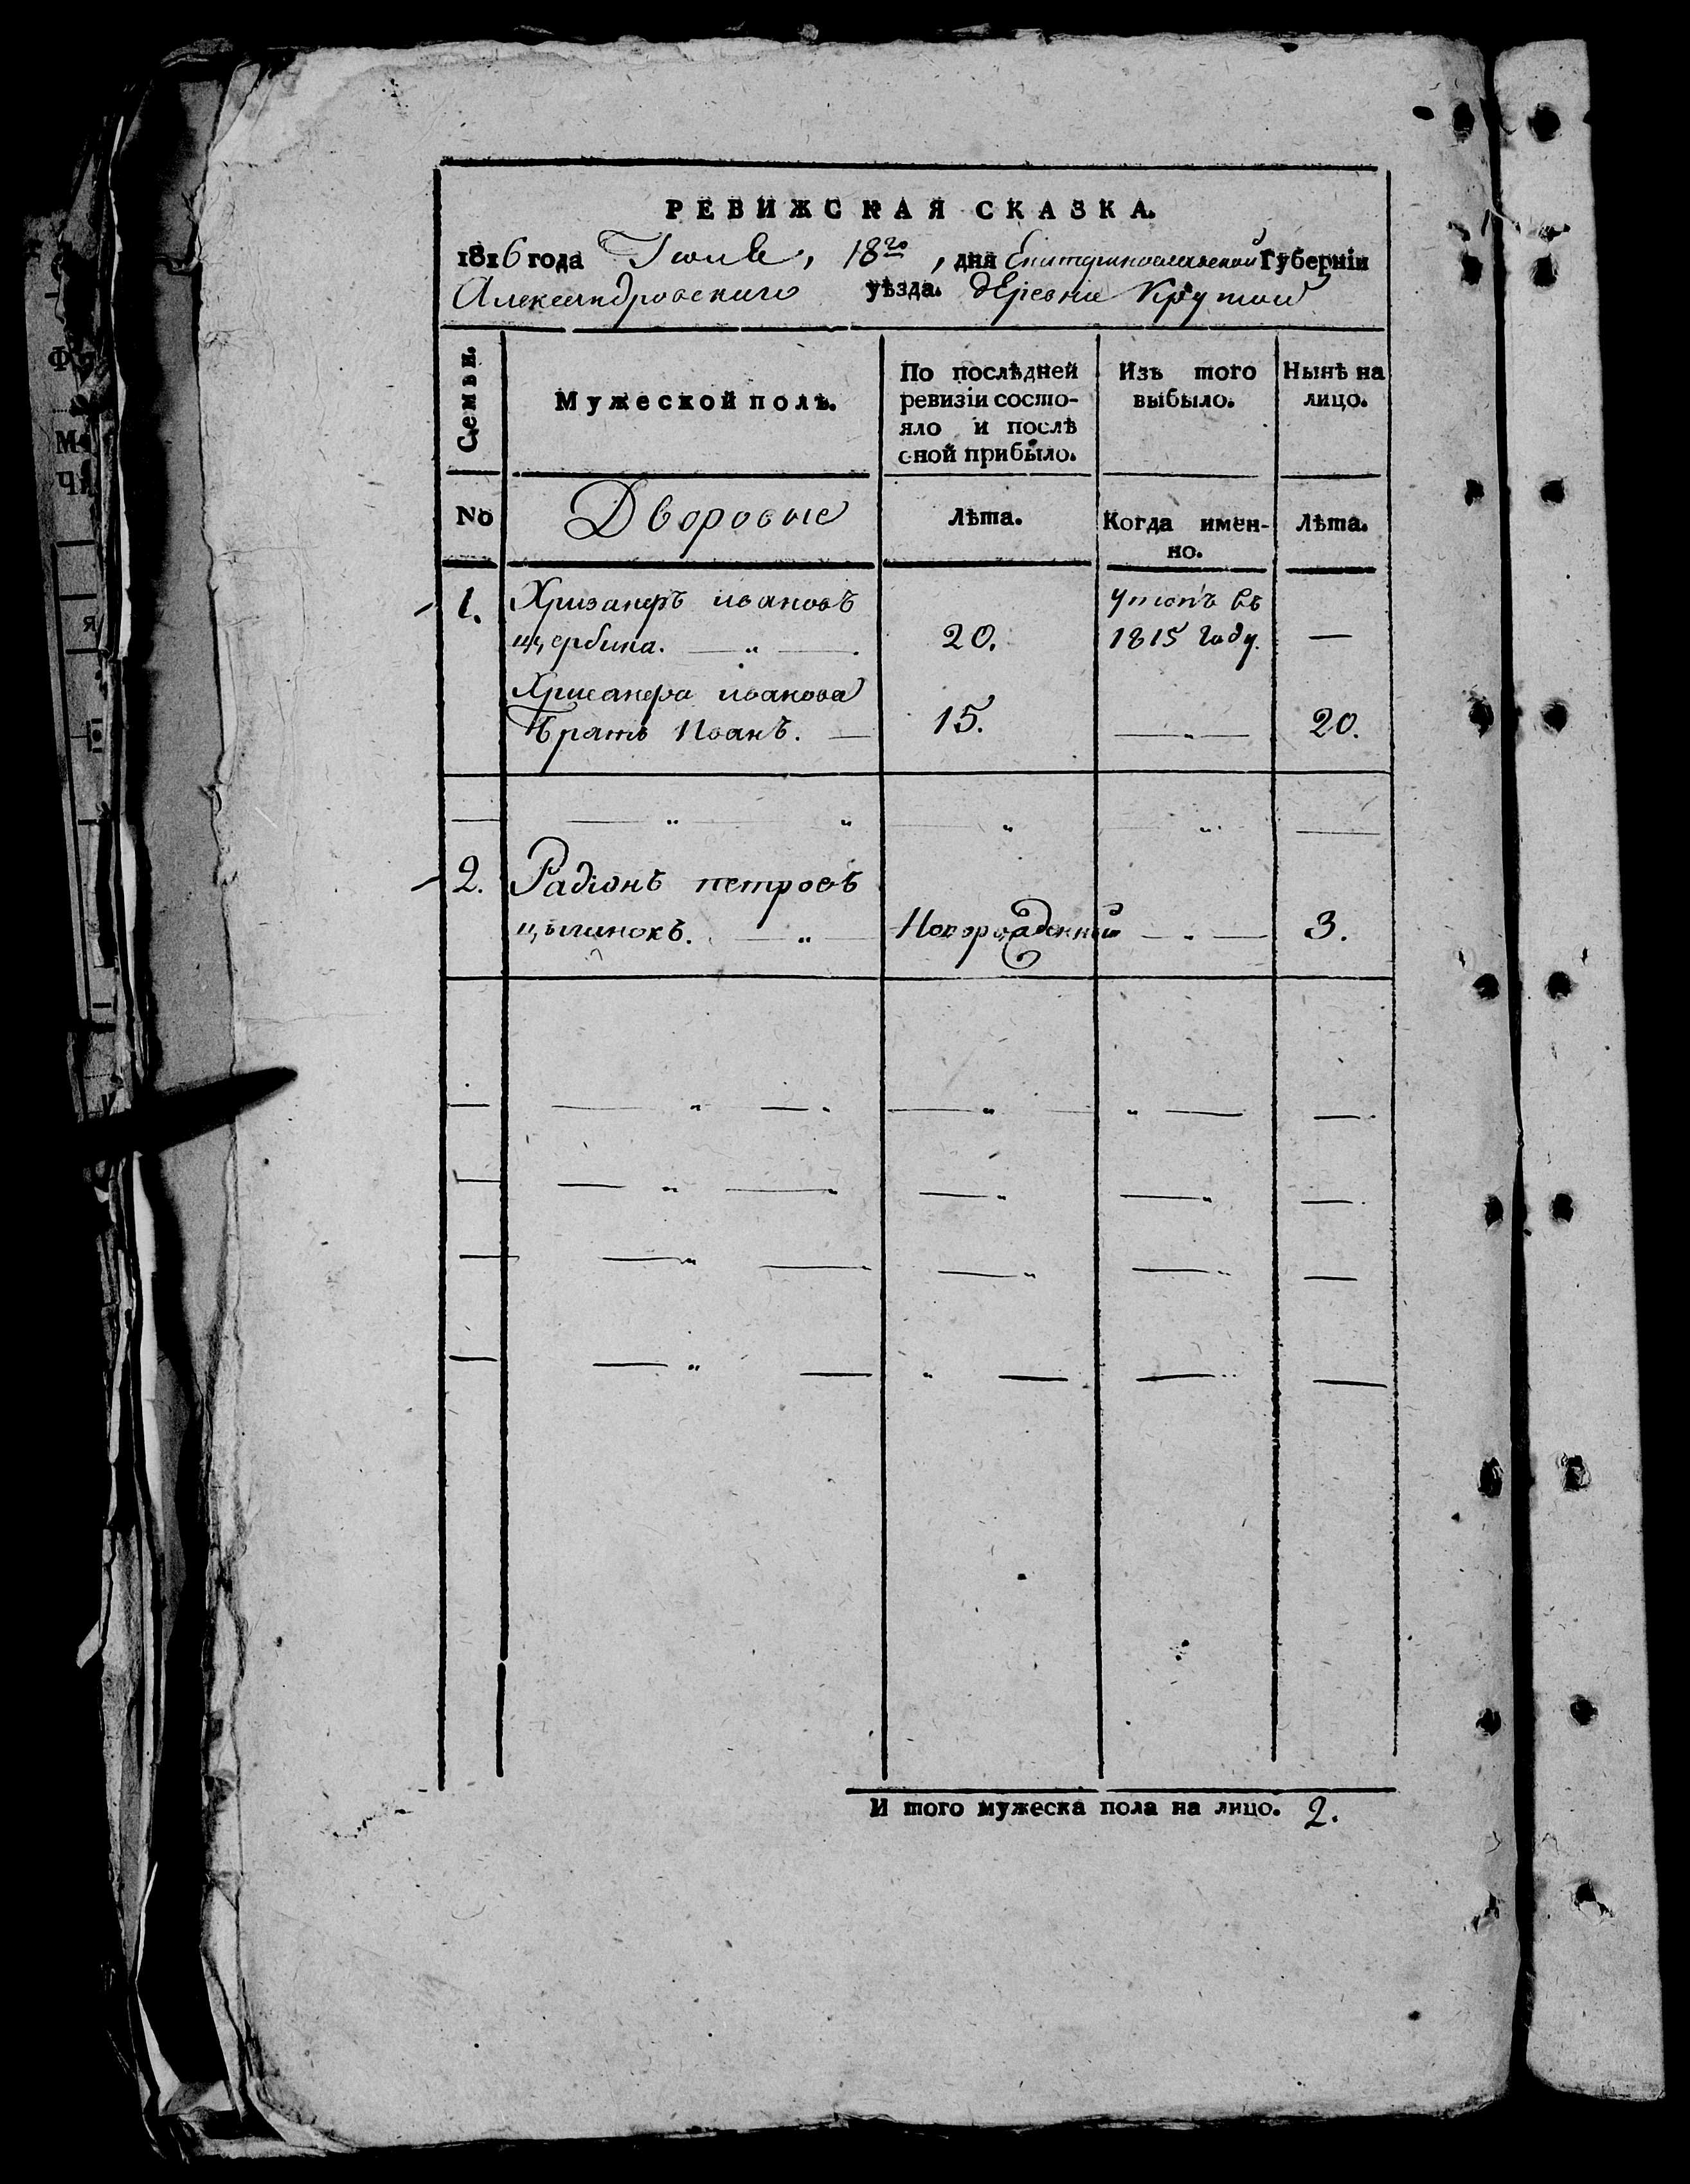 РЕВИЖСКАЯ СКАЗКА.
1816 года Iюля, 18го, дня Екатеринославской Губернiи
Александровскаго уѣзда. деревни Крутой
Семьи.
Мужеской полъ.
По послѣдней
ревизiи состо-
яло и послѣ
оной прибыло.
Изъ того
выбыло.
Нынѣ на
лицо.
No
Дворовые
Лѣта.
Когда имен-
но.
Лѣта.
1. Хризанфъ ивановъ
щербина. 20. утопъ въ 1815 году. —
Хрисанфа иванова
братъ Иванъ. — 15. — 20.
2. Радiонъ петровъ
цыганокъ. Новорожденный — 3.
И того мужеска пола на лицо. 2.